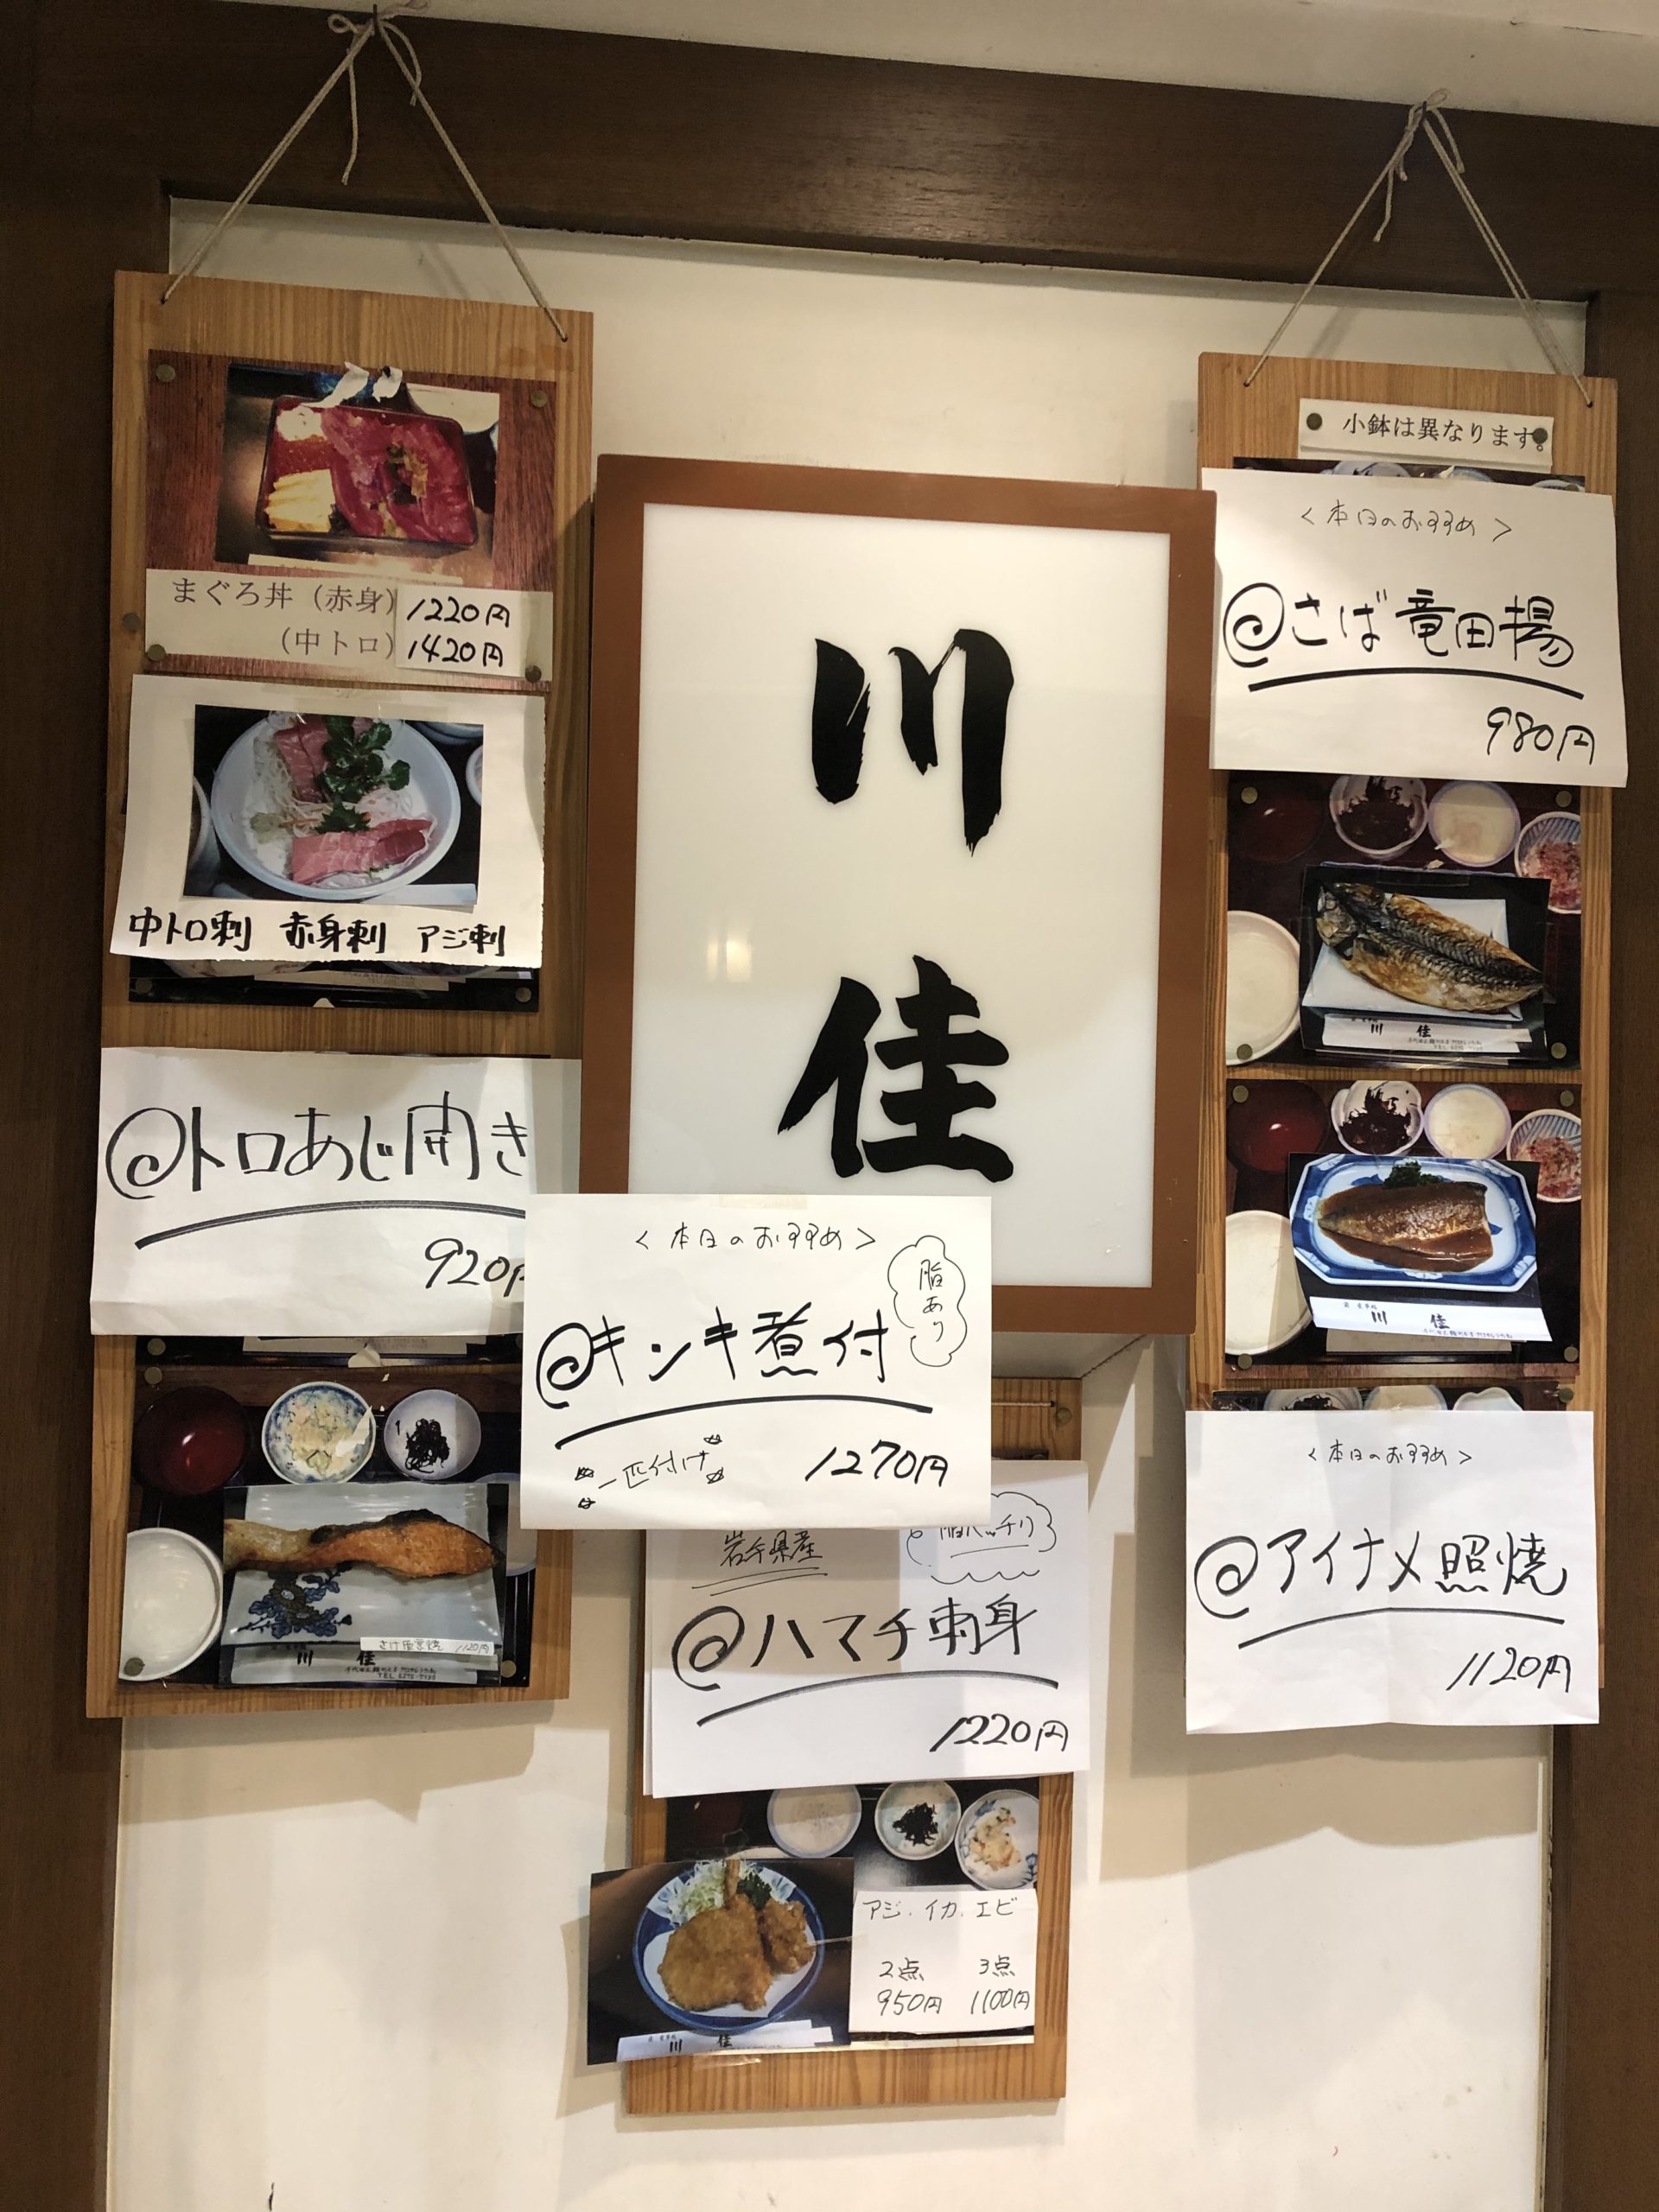 まぐろ丼（赤身）1220円
（中トロ）1420円
中トロ刺 赤身刺 アジ刺
@トロあじ開き
920円
さけ 1120円
川 佳
川
佳
＜本日のおすすめ＞
脂あり
@キンキ煮付
一匹付け
1270円
岩手県産
@ハマチ刺身
1220円
アジ.イカ.エビ
2点 3点
950円 1100円
川 佳
小鉢は異なります。
＜本日のおすすめ＞
@さば竜田揚
980円
川 佳
川 佳
＜本日のおすすめ＞
@アイナメ照焼
1120円